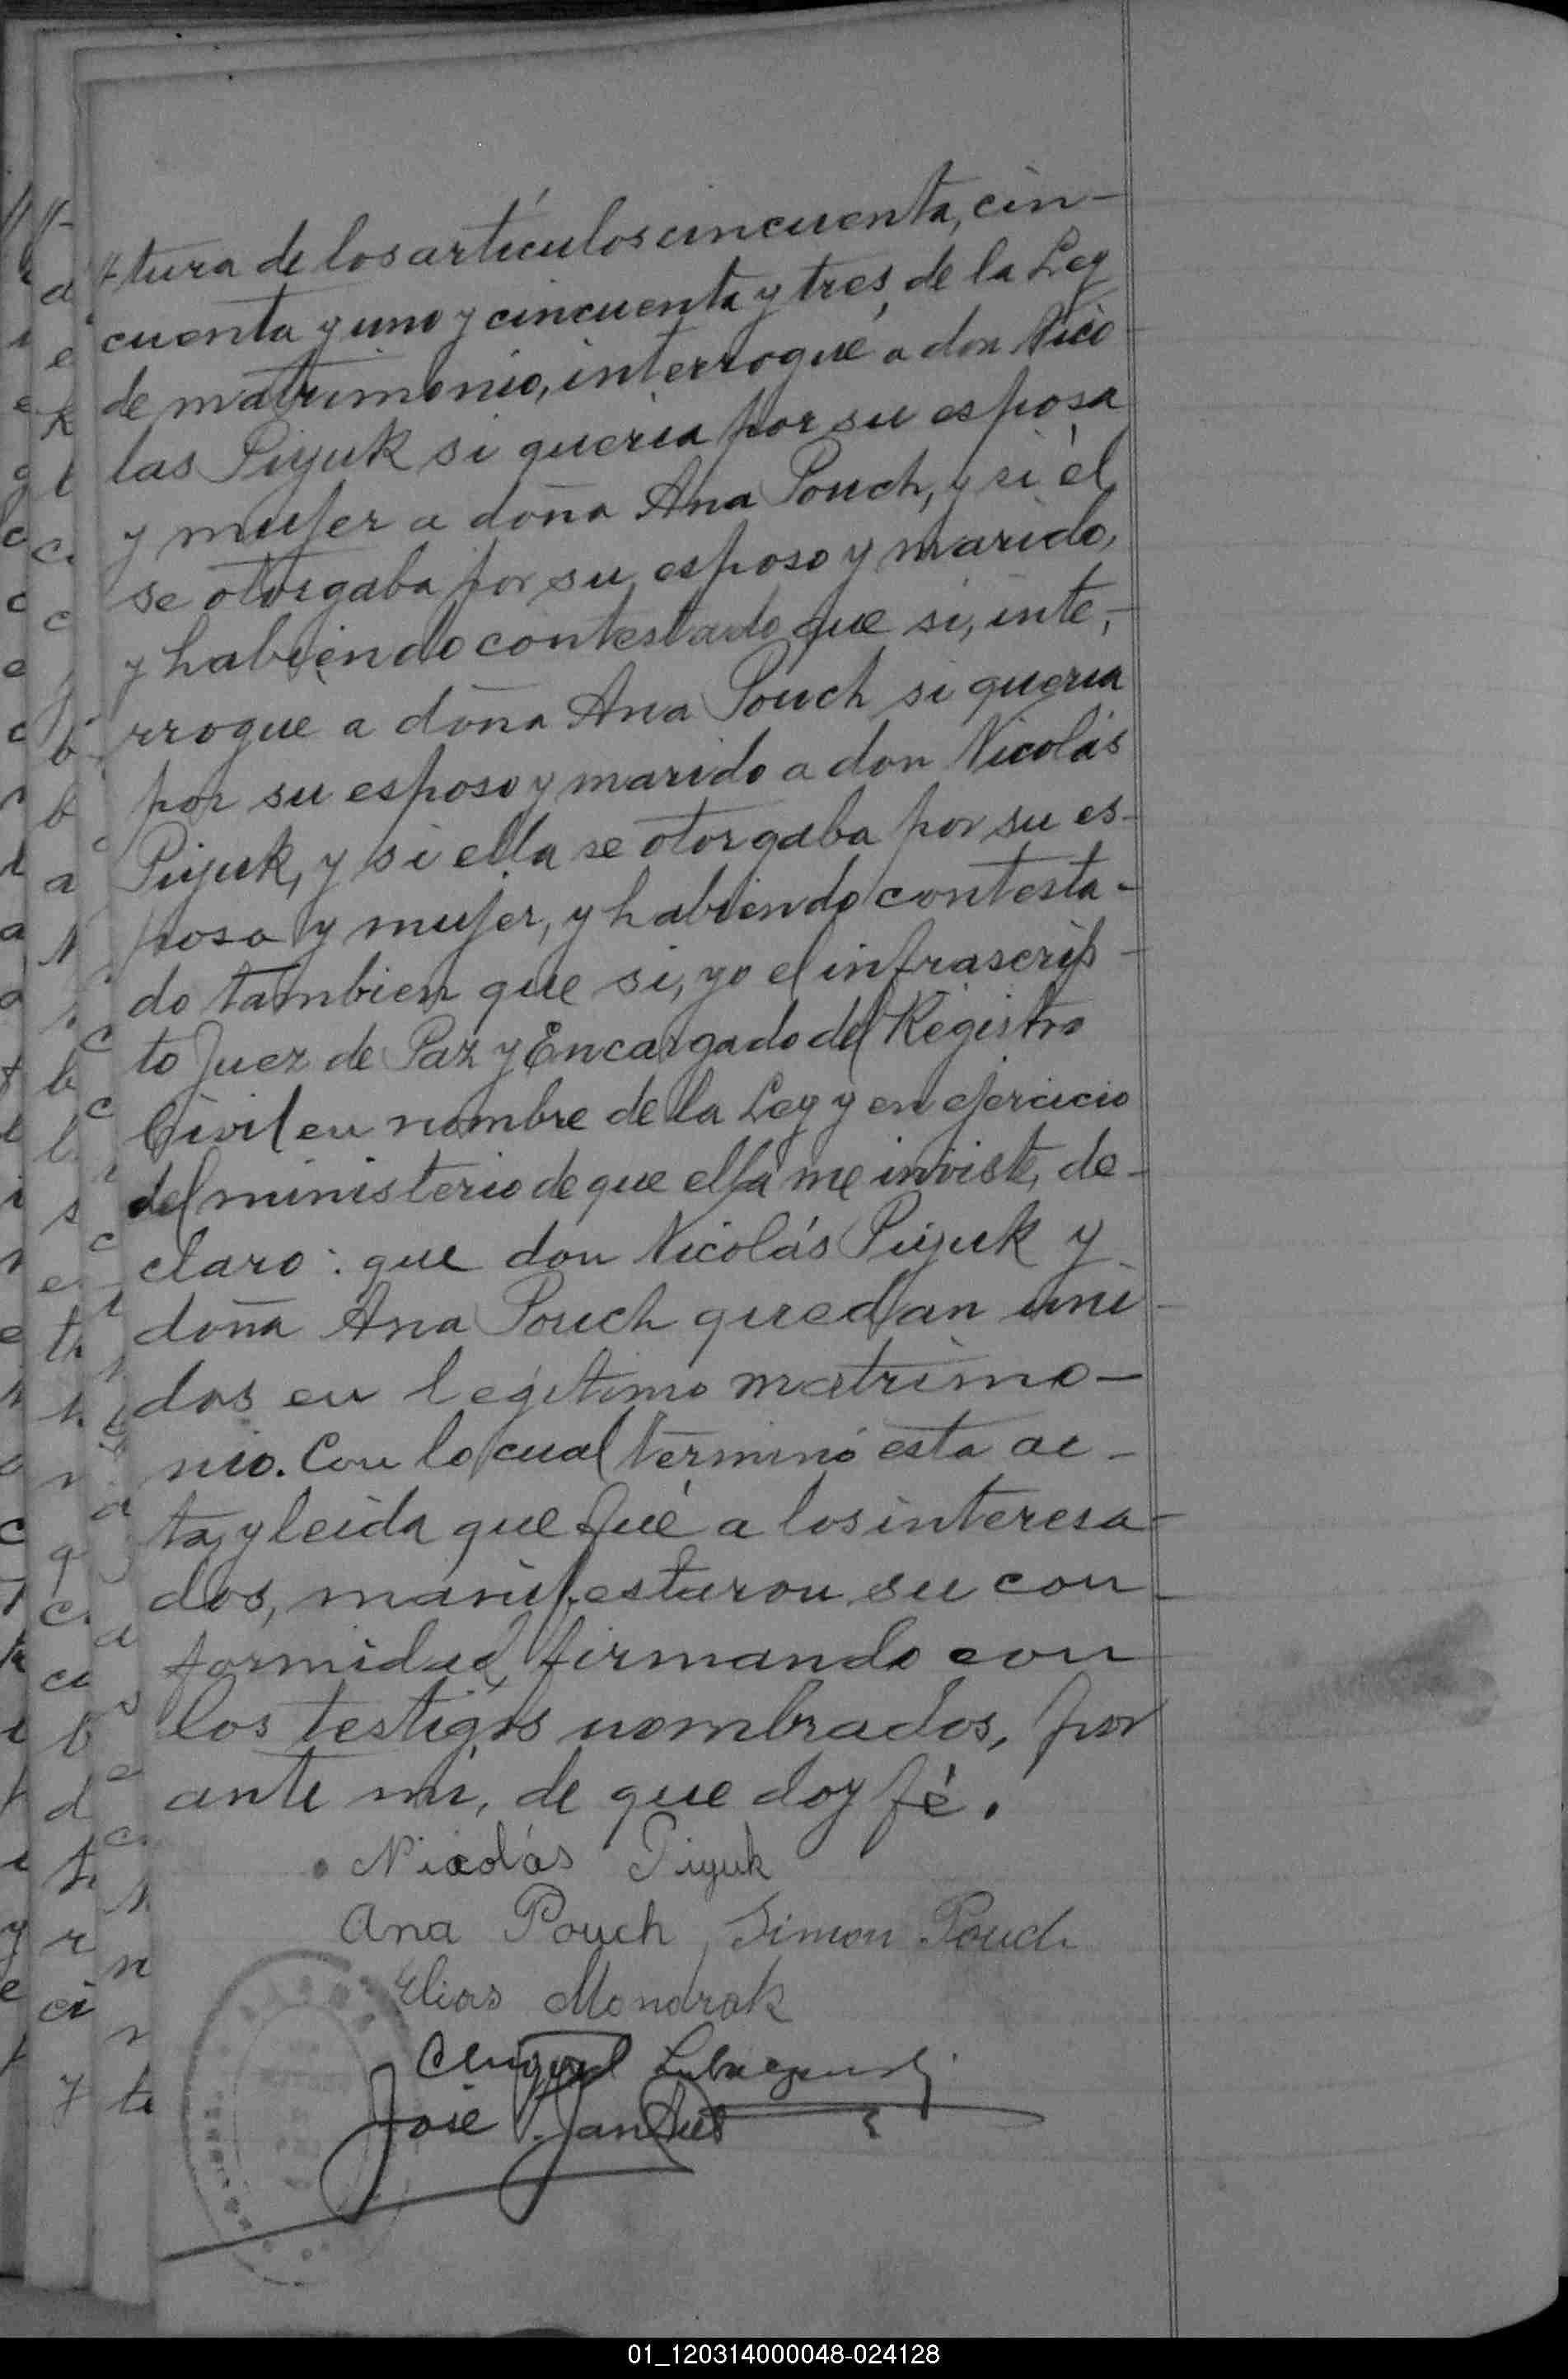 tura de los artículos cincuenta, cin-
cuenta y uno y cincuenta y tres, de la Ley
de matrimonio, interrogué a don Nico-
las Piyuk si queria por su esposa
y mujer a doña Ana Pouch, y si él
se otorgaba por su esposo y marido,
y habiendo contestado que si, inte-
rrogué a doña Ana Pouch si queria
por su esposo y marido a don Nicolás
Piyuk, y si ella se otorgaba por su es-
posa y mujer, y habiendo contesta-
do tambien que si, yo el infrascrip-
to Juez de Paz y Encargado del Registro
Civil en nombre de la Ley y en ejercicio
del ministerio de que ella me inviste, de-
claro: que don Nicolás Piyuk y
doña Ana Pouch quedan uni-
dos en legítimo matrimo-
nio. Con lo cual terminó esta ac-
ta, y leida que fué a los interesa-
dos, manifestaron su con-
formidad, firmando con
los testigos nombrados, por
ante mi, de que doy fé.
Nicolás Piyuk
Ana Pouch Simon Pouch
Elias Mondrak
José
01_120314000048-024128